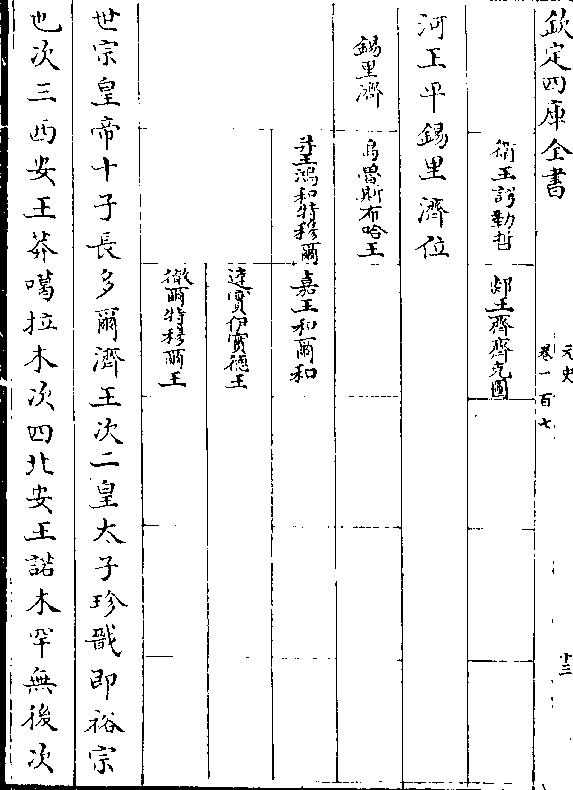 欽定四庫全書
元史
卷一百七
十三
衛王諤勒哲
郯王齊齊克圖
河王平錫里濟位
錫里濟
烏魯斯布哈王
并王鴻和特穆爾
嘉王和爾和
達實伊實德王
徹爾特穆爾王
世宗皇帝十子長多爾濟王次二皇太子珍戩即裕宗
也次三西安王莽噶拉木次四北安王諾木罕無後次